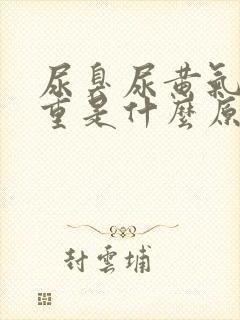 尿臭尿黄氣
重是什麼原
封雲埔